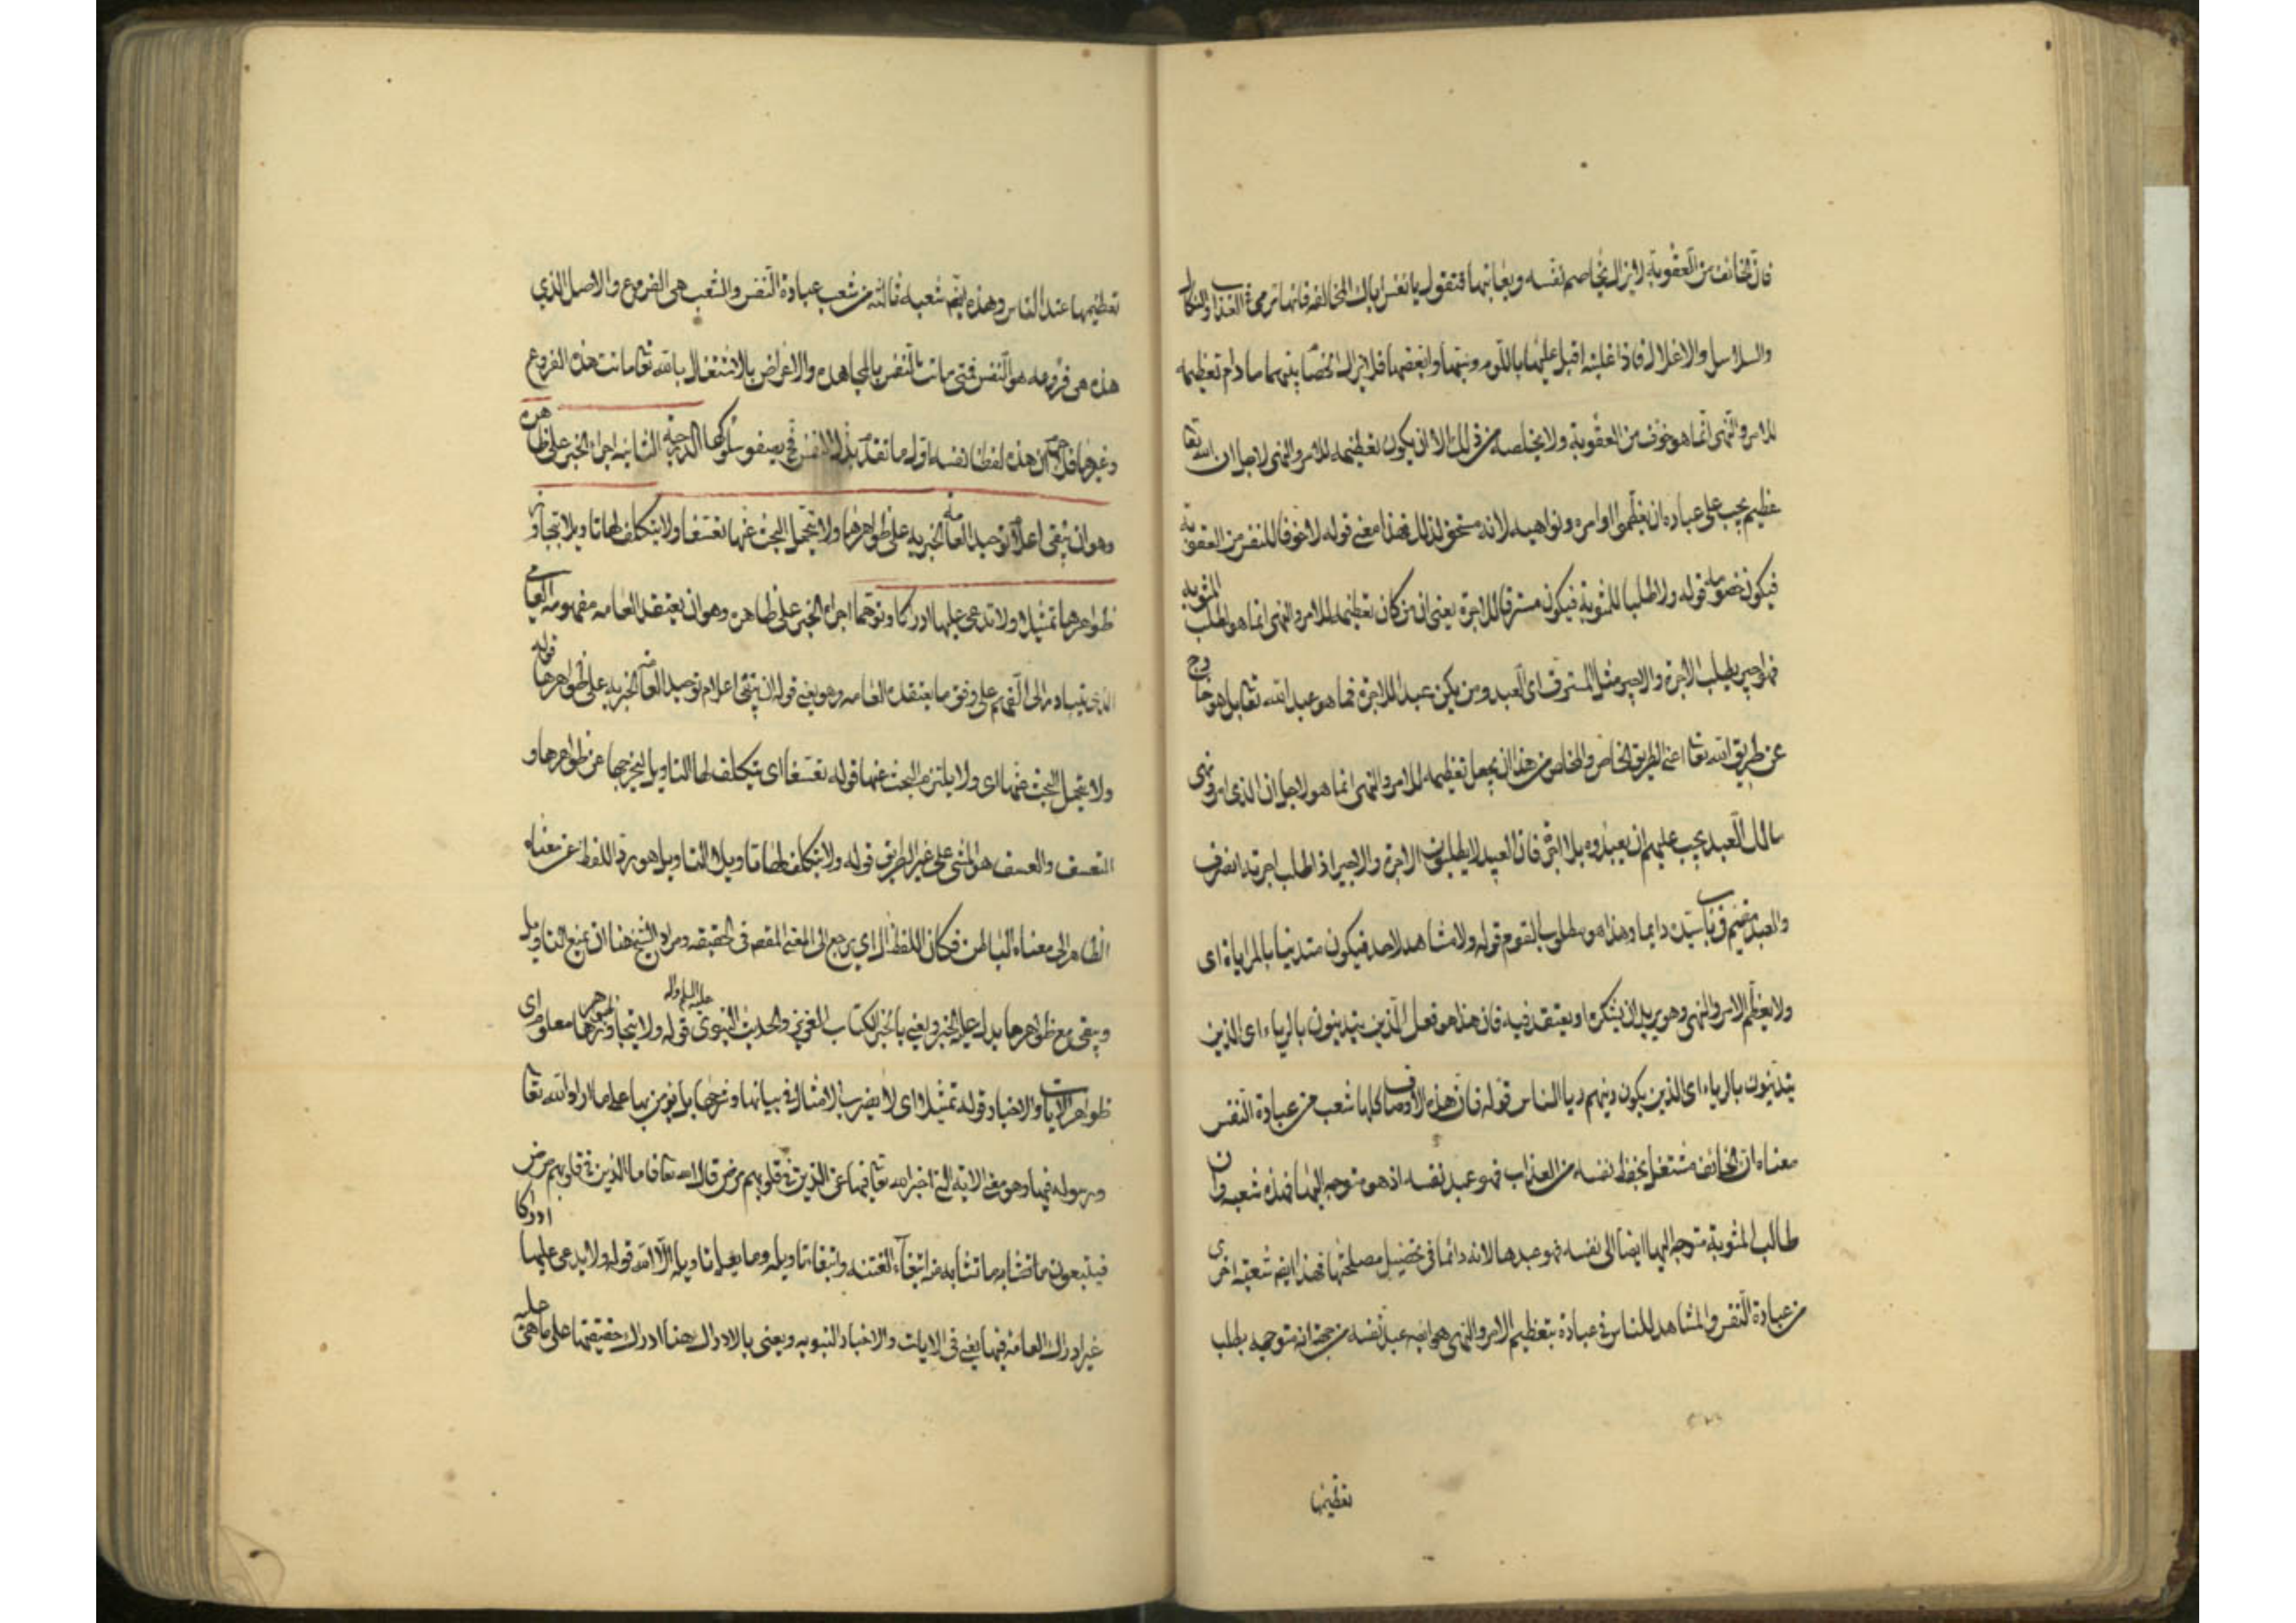 فان الخائف من العقوبة لا يزال يخاصم نفسه ويعاتبها فتقول يا نفس اياك المخالفة فانها ترمي في العذاب والنكال
والسلاسل والاغلال فاذا غلبته اقبل عليها باللوم وسبها وابغضها فلا يزال الخصام بينهما ما دام تعظيمه
للامر والنهى انما هو خوف من العقوبة ولا يخلصه من ذلك الا ان يكون تعظيمه للامر والنهى لاجل ان الله تعا
عظيم يجب على عباده ان يعظموا اوامره ونواهيه لانه مستحق لذلك فهذا معنى قوله لا خوفا للنفس من العقوبة
فيكون خصومة قوله ولا طلبا للمثوبة فيكون مسترقا للاجرة يعنى ان من كان تعظيمه للامر والنهى انما هو لطلب المثوبة
فهو اجير يطلب الاجرة والاجير مثل المسترق اى العبد ومن يكن عبدا للاجرة فما هو عبد الله تعا بل هو خارج
عن طريق الله تعا اعنى الطريق الخاص والخلاص من هذا ان يجعل تعظيمه للامر والنهى انما هو لاجل ان الذى امر ونهى
مالك العبد يجب عليهم ان يعبدوه بلا اجرة فان العبيد لا يطلبون الاجرة والاجير اذا طلب اجرته انصرف
والعبد مقيم فى باب سيده دايما وهذا هو مطلوب القوم قوله ولا مشاهدا لاحد فيكون متدينا بالمراياة اى
ولا يعظم الامر والنهى وهو يريد ان يشكره او يعتقد فيه فان هذا هو فعل الذين يتدينون بالرياء اى الذين
يتدينون بالرياء اى الذين يكون دينهم رياء الناس قوله فان هذه الاوصاف كلها شعب من عبادة النفس
معناه ان الخائف مشتغل بحفظ نفسه من العذاب فهو عبد نفسه اذ هو متوجه اليها فهذه شعبه وان
طالب المثوبة متوجه اليها ايضا الى نفسه فهو عبدها لانه دائما فى تحصيل مصلحتها فهذا ايضا شعبة اخرى
من عبادة النفس والمشاهد للناس فى عبادة بتعظيم الامر والنهى هو ايضا عبد نفسه من جهة انه متوجه يطلب
تعظيمها
تعظيمها عند الناس وهذه ايضا شعبه ثالثه من شعب عبادة النفس والشعب هى الفروع والاصل الذي
هذه هى فروعه هو النفس فمتى ماتت النفس بالمجاهدة والاعراض بالاشتغال بالله تعا ماتت هذه الفروع
وغيرها هذه لفظا نفسه اوله ما تقدم يصفو سلوكها الدرجة الثانية اجراء الخبر على ظاهره
وهو ان تبقى اعلام توحيد العامة الخبرية على ظواهرها ولا يتحمل البحث عنها تعسفا ولا يتكلف لها تاويلا ولا يتجاوز
ظواهرها تمثيلا ولا تدعى عليها ادراكا وتوهما اجراء الخبر على ظاهره وهو ان يعتقد العامه مفهومه العامى
الذى يتبادر الى الفهم على وفق ما يعتقده العامه وهو يعنى قوله ان تبقى اعلام توحيد العامه الخبريه على ظواهرها قوله
ولا يتحمل البحث عنها اى ولا يلتزم البحث عنها قوله تعسفا اى يتكلف لها التاويل ليخرجها عن ظواهرها و
التعسف والعسف هو المشى على غير الطريق قوله ولا يتكلف لها تاويلا التاويل هو رد اللفظ عن معناه
الظاهر الى معناه الباطن فكان اللفظ الذي يرجع الى المعنى المقصود فى الحقيقه ومراد الشيخ هنا ان يمنع التاويل
ويبقى مع ظواهرها يدل عليه الخبر ويعنى بالخبر الكتاب العزيز والحديث النبوى عليه السلام واله قوله ولا يتجاوز ظواهرها معلوم اى
ظواهر الايات والاخبار قوله تمثيلا اى لا يضرب الامثال فى بيانها وشرحها بل يؤمن بها على ما اراد الله تعا
ورسوله فيها وهو معنى الاية التى اخبر الله تعا فيها عن الذين فى قلوبهم مرض قال الله تعا فاما الذين فى قلوبهم مرض
فيتبعون ما تشابه منه ابتغاء الفتنه وابتغاء تاويله وما يعلم تاويله الا الله قوله ولا يدعى عليها ادراكا
غير ادراك العامة فيها يعنى فى الايات والاخبار النبويه ويعنى بالادراك هنا ادراك حقيقتها على ما هى عليه